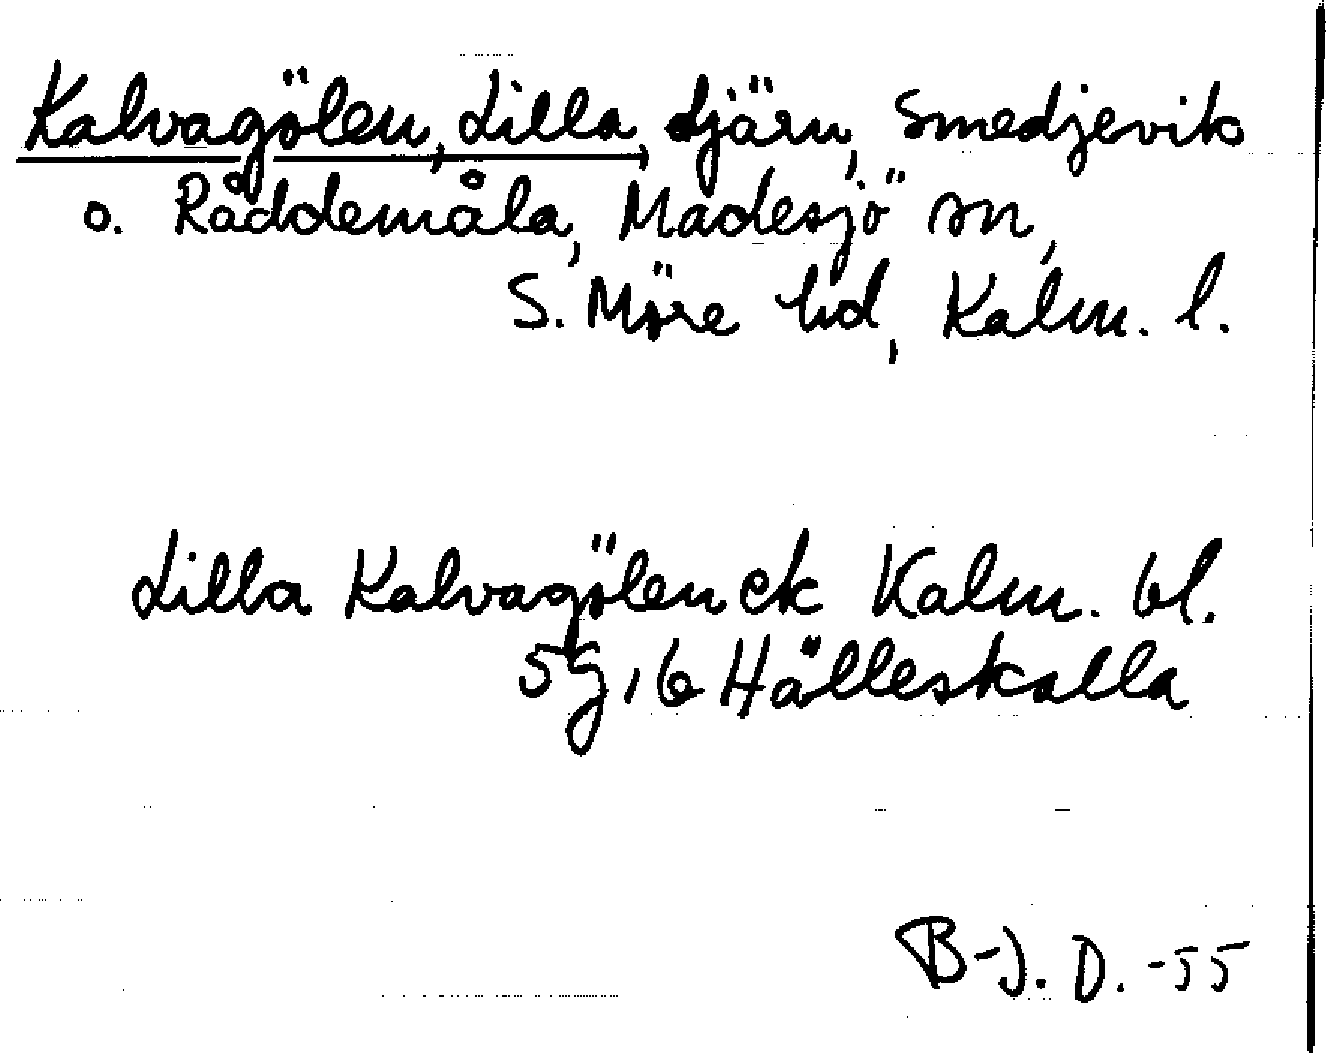 Kalvagölen, Lilla, djärn, Smedjevik
o. Råddemåla, Madesjö sn,
S. Möre hd, Kalm. l.
Lilla Kalvagölen ek Kalm. bl.
5g, 6 Hälleskalla
B-J. D. -55